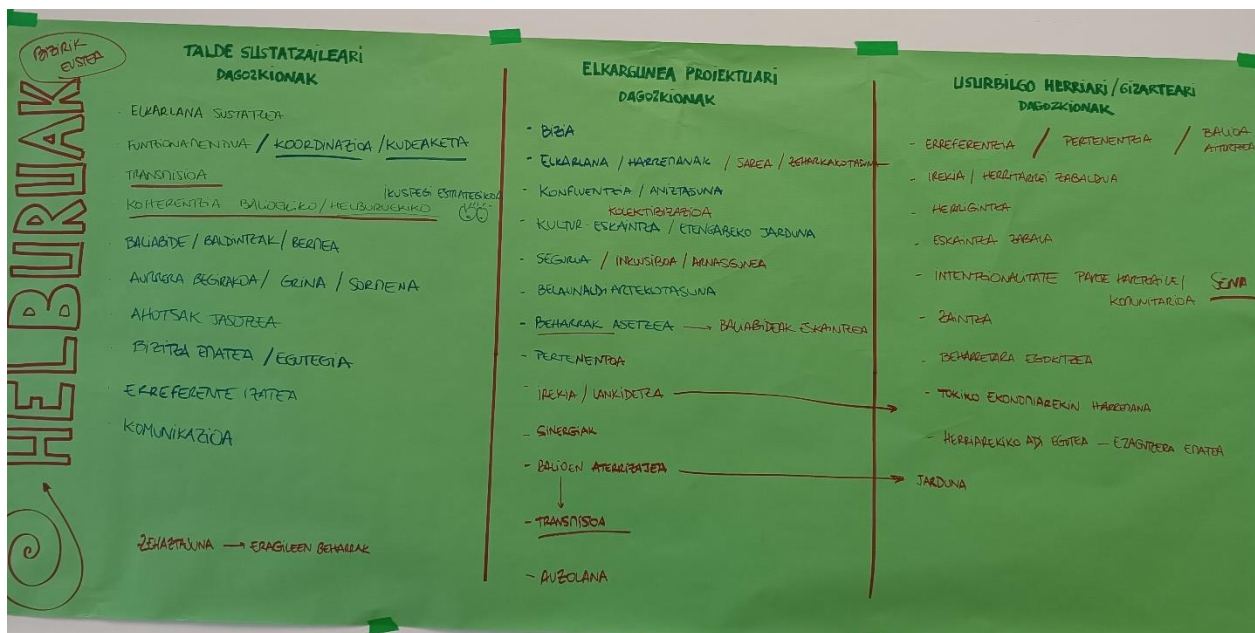 BIZIRIK
EUSTEA
HELBURUAK
TALDE SUSTATZAILEARI
DAGOZKIONAK
- ELKARLANA SUSTATZEA
- FUNTZIONAMENDUA / KOORDINAZIOA / KUDEAKETA
- TRANSMISIOA
IKUSPEGI ESTRATEGIKOA
- KOHERENTZIA BALOEKIKO / HELBURUEKIKO
- BALIABIDE / BALDINTZAK / BERMEA
- AURRERA BEGIRAKOA / GRINA / SORMENA
- AHOTSAK JASOTZEA
- BIZITZA EMATEA / EGUTEGIA
- ERREFERENTE IZATEA
- KOMUNIKAZIOA
ZEHAZTASUNA → ERAGILEEN BEHARRAK
ELKARGUNEA PROIEKTUARI
DAGOZKIONAK
- BIZIA
- ELKARLANA / HARREMANAK / SAREA / ZEHARKAKOTASUNA
- KONFLUENTZIA / ANIZTASUNA
KOLEKTIBIZAZIOA
- KULTUR ESKAINTZA / ETENGABEKO JARDUNA
- SEGURUA / INKLUSIBOA / ARNASGUNEA
- BELAUNALDI ARTEKOTASUNA
- BEHARRAK ASETZEA → BALIABIDEAK ESKAINTZEA
- PERTENENTZIA
- IREKIA / LANKIDETZA
- SINERGIAK
- BALIOEN ATERRIZAJEA
- TRANSMISIOA
- AUZOLANA
USURBILGO HERRIARI / GIZARTEARI
DAGOZKIONAK
- ERREFERENTZIA / PERTENENTZIA / BALIOA
AITORTZEA
- IREKIA / HERRITARREI ZABALDUA
- HERRIGINTZA
- ESKAINTZA ZABALA
- INTENTZIONALITATE PARTE HARTZAILE / SENA
KOMUNITARIOA
- ZAINTZA
- BEHARRETARA EGOKITZEA
- TOKIKO EKONOMIAREKIN HARREMANA
- HERRIAREKIKO ADI EGOTEA - EZAGUTZERA EMATEA
JARDUNA